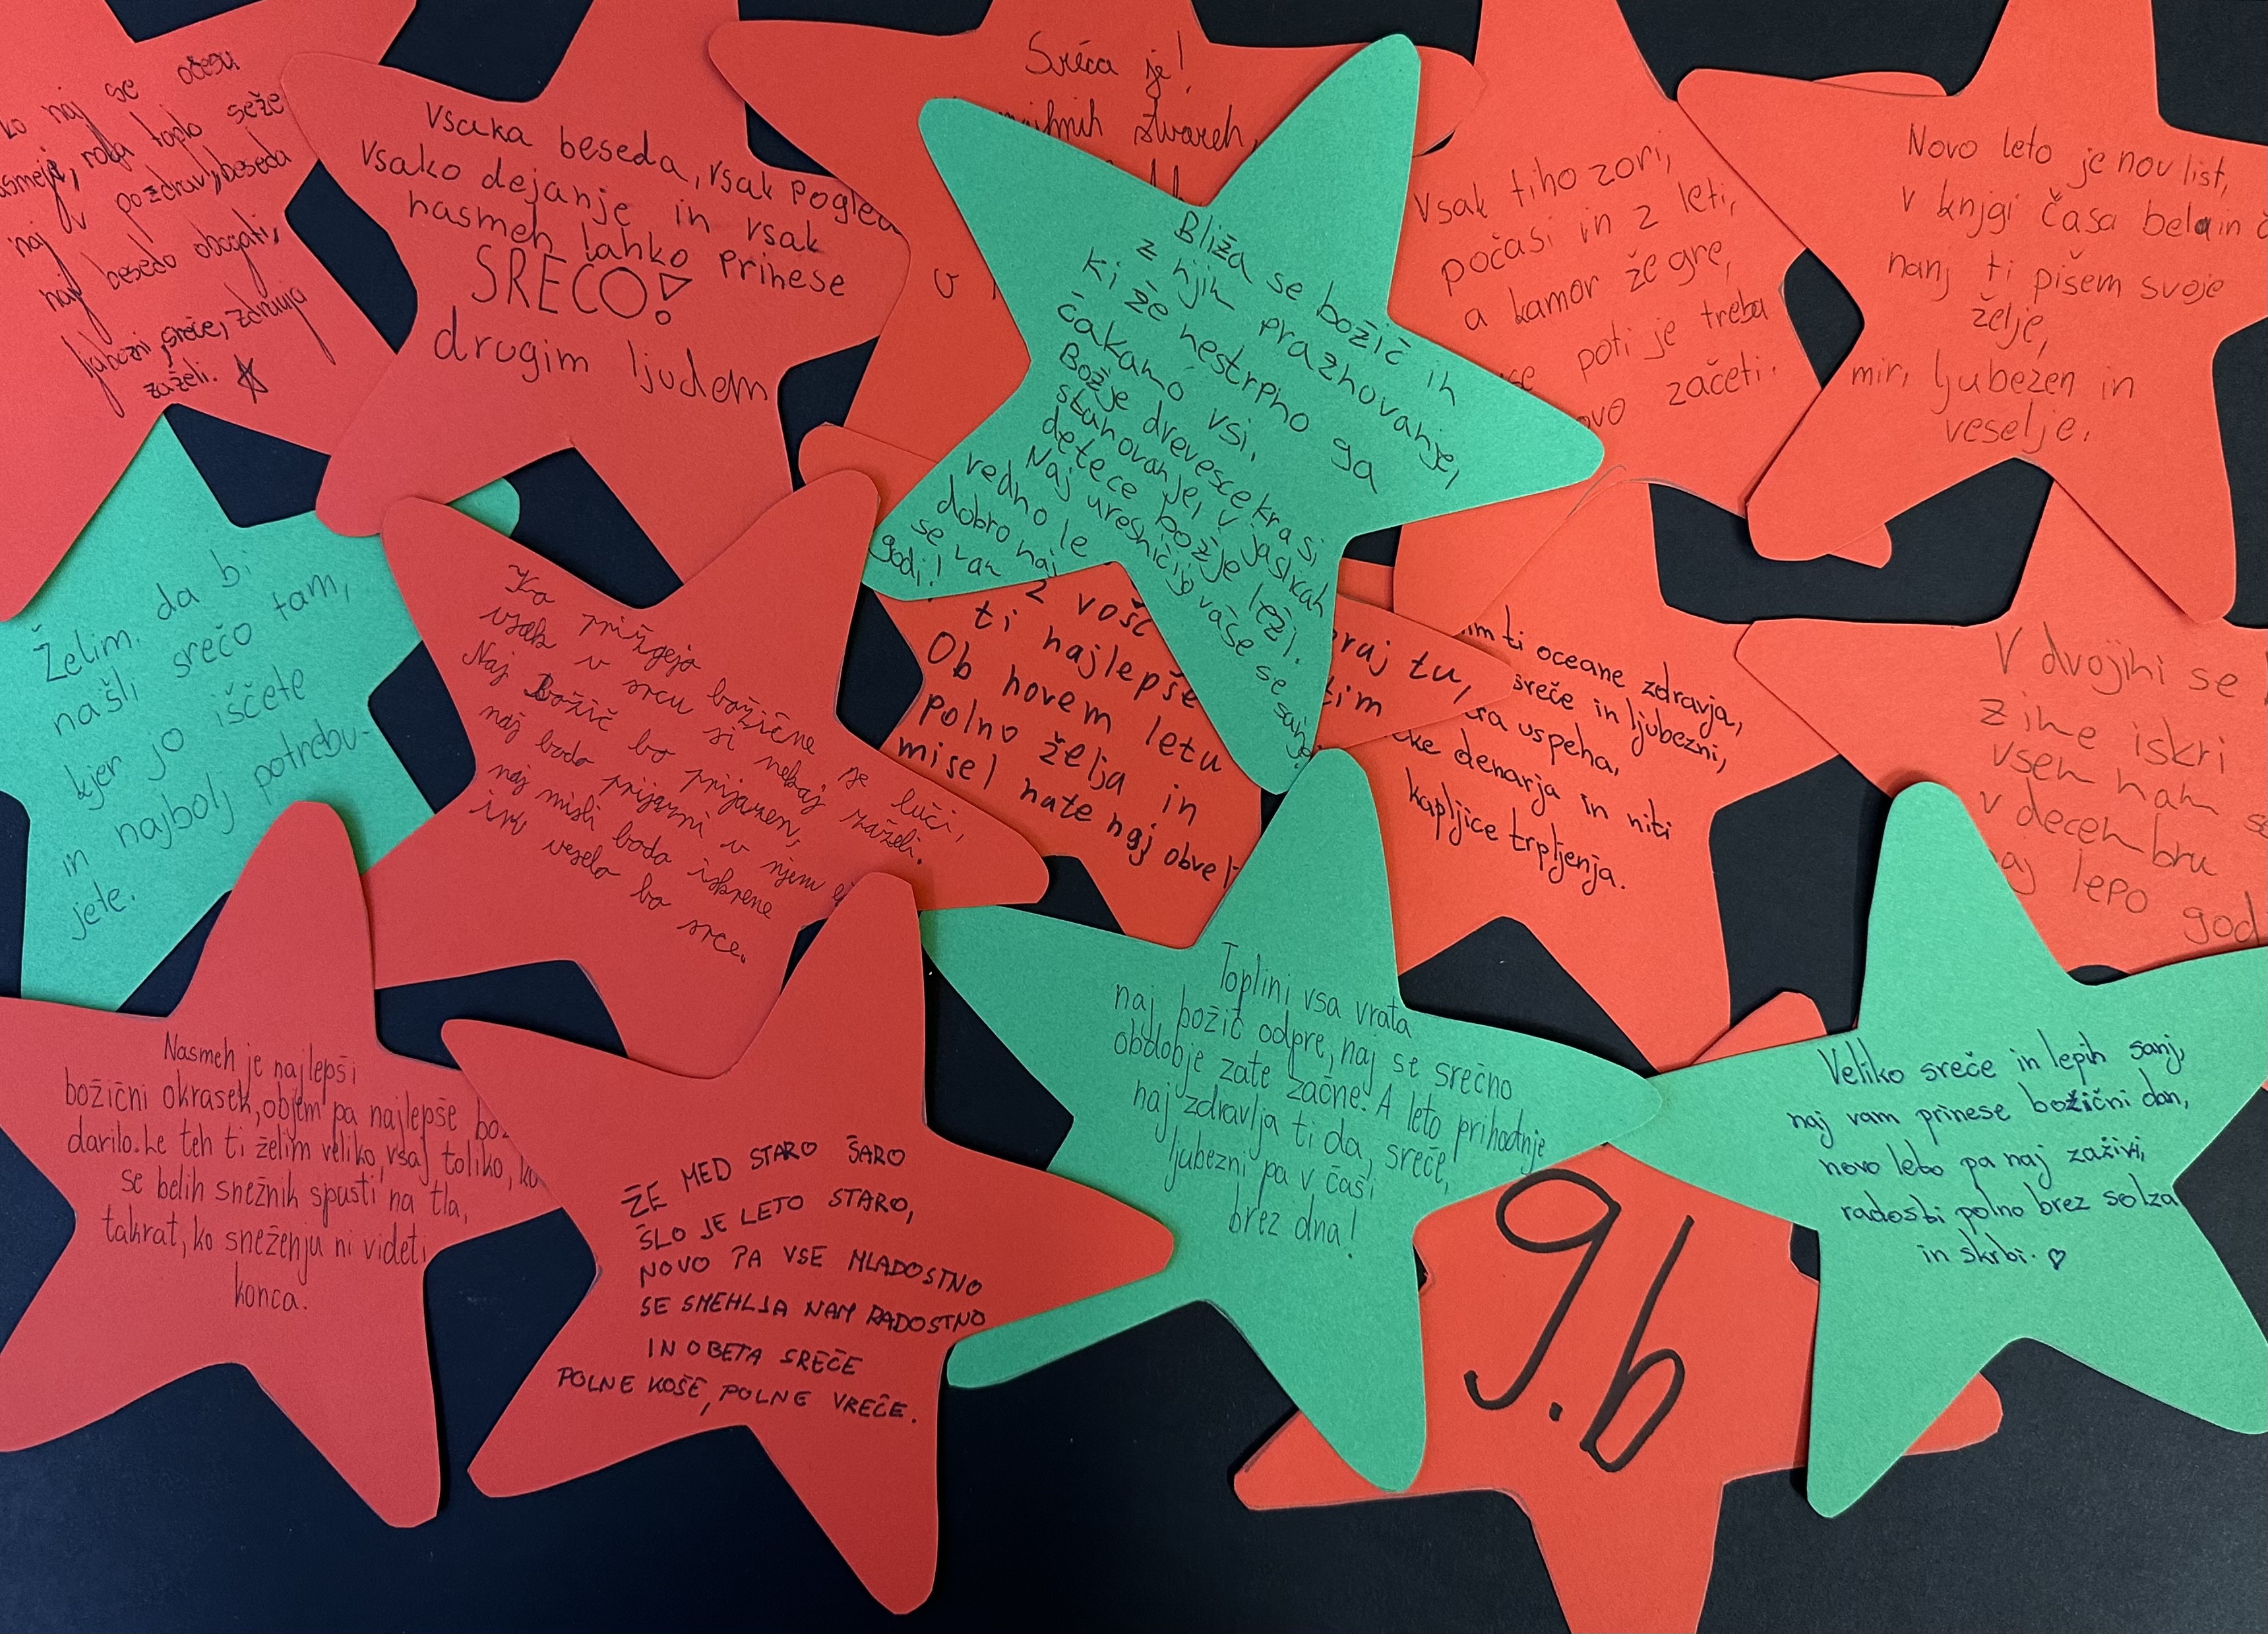 naj se očesu
roka toplo seže
naj v pozdrav, beseda
naj besedo obogati,
sreče, zdravja
zaželi.
Vsaka beseda, vsak pogled
vsako dejanje in vsak
nasmeh lahko prinese
SREČO!
drugim ljudem
Sreča je!
stvareh,
v
Bliža se božič in
z njim praznovanje,
ki že nestrpno ga
čakamo vsi.
Božje drevesce krasi
stanovanje, v jaslicah
detece božje leži.
Naj uresničijo vaše se sanje,
vedno le
dobro naj
se vam
godi!
Vsak tiho zori,
počasi in z leti,
a kamor že gre,
poti je treba
začeti.
Novo leto je nov list,
v knjgi časa bela in
nanj ti pišem svoje
želje,
mir, ljubezen in
veselje.
Želim, da bi
našli srečo tam,
kjer jo iščete
in najbolj potrebu-
jete.
Ko prižgejo božične se luči,
vsak v srcu si nekaj zaželi.
Naj Božič bo prijazen,
naj bodo prijazni v njem
naj misli bodo iskrene
in veselo bo srce.
z vošč
ti najlepše
tim
Ob novem letu
polno želja in
misel nate naj
tu,
ti oceane zdravja,
sreče in ljubezni,
uspeha,
denarja in niti
kapljice trpljenja.
V dvojini se
zime iskri
vsem nam
v decembru
lepo
Nasmeh je najlepši
božični okrasek, objem pa najlepše
darilo. Le teh ti želim veliko, vsaj toliko,
se belih snežnik spusti na tla,
takrat, ko sneženju ni videti
konca.
ŽE MED STARO ŠARO
ŠLO JE LETO STARO,
NOVO PA VSE MLADOSTNO
SE SMEHLJA NAM RADOSTNO
IN OBETA SREČE
POLNE KOŠE, POLNE VREČE.
Toplini vsa vrata
naj božič odpre, naj se srečno
obdobje zate začne. A leto prihodnje
naj zdravlja ti da, sreče,
ljubezni pa v čaši
brez dna!
Veliko sreče in lepih sanj,
naj vam prinese božični dan,
novo leto pa naj zaživi,
radosti polno brez solza
in skrbi. ♡
9.b